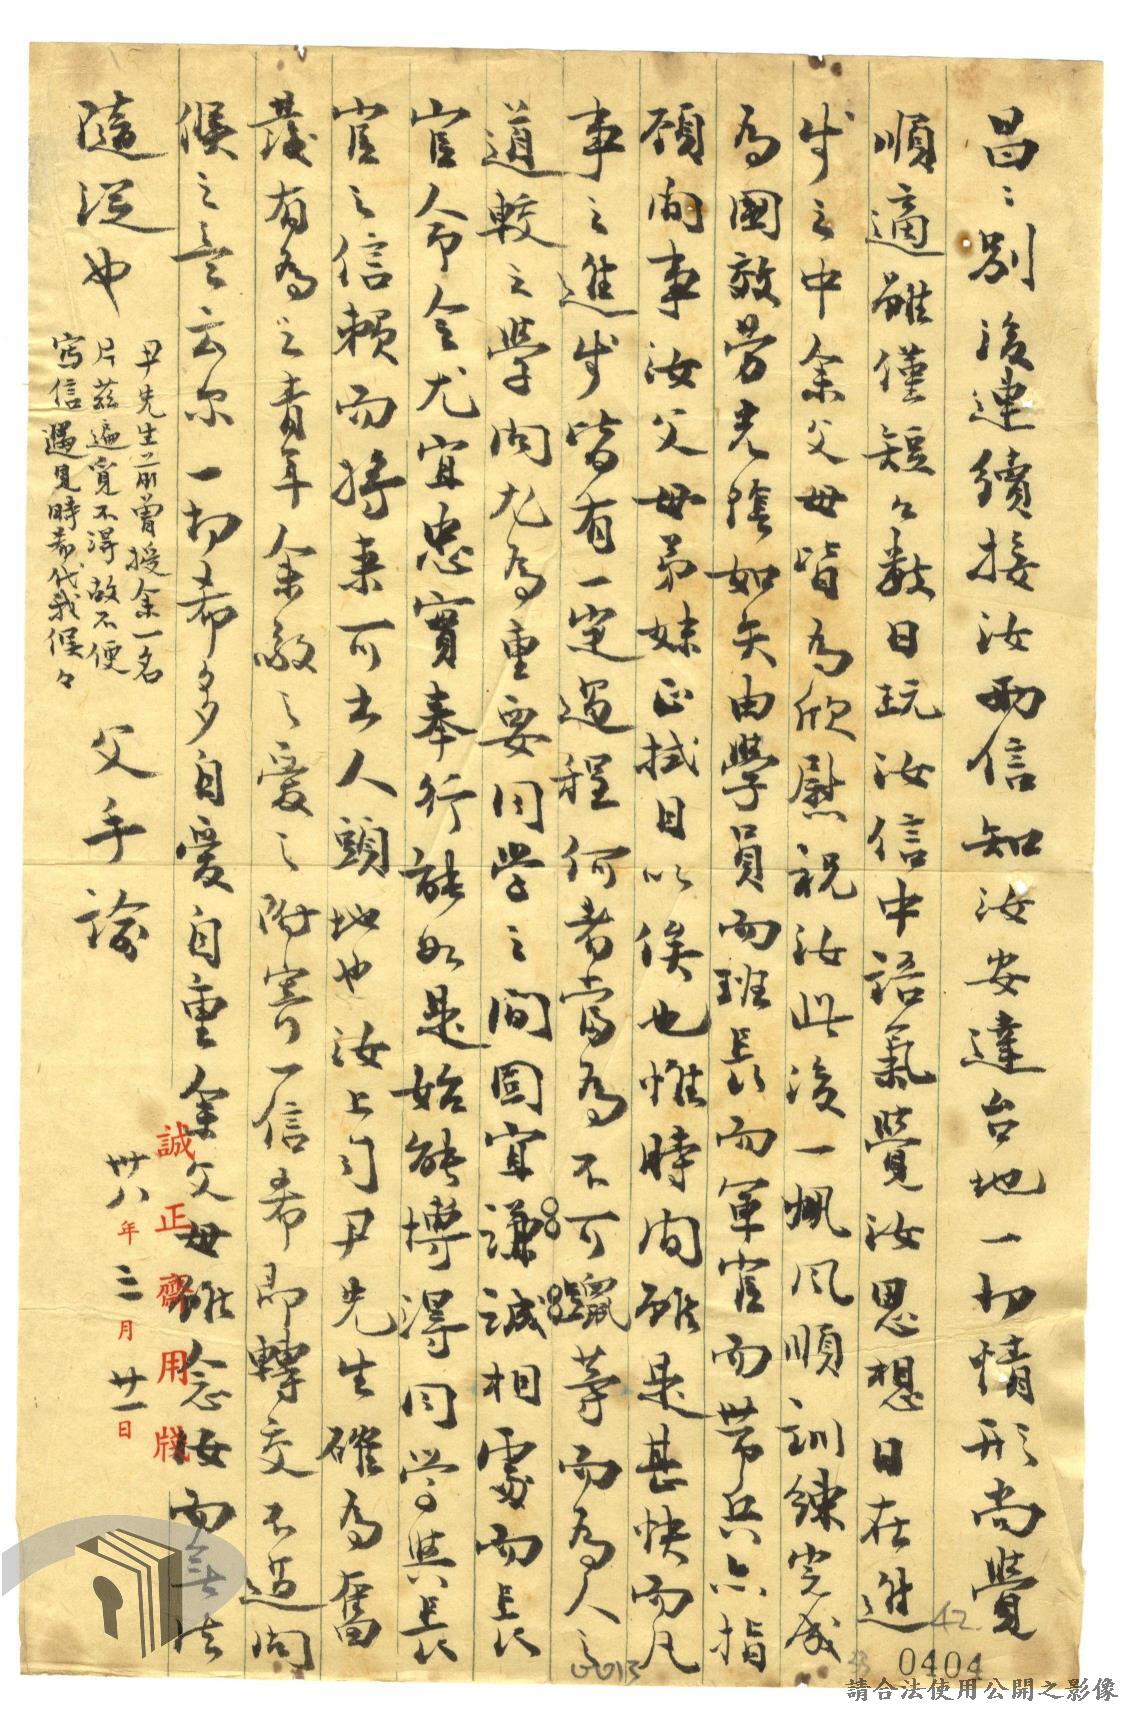 昌々別後連續接汝兩信知汝安達台地一切情形尚覺
順適雖僅短々數日玩汝信中語氣覺汝思想日在進
步之中余父母皆為欣慰祝汝此後一帆風順訓練完成
為國效勞光陰如矢由學員而班長而軍官而帶兵亦指
顧間事汝父母弟妹正拭目以俟也惟時間雖是甚快而凡
事之進步皆有一定過程何者當為不可躐等而為人之
道較之學問尤為重要同學之間固宜謙誠相處而長
官命令尤宜忠實奉行能如是始能博得同學與長
官之信賴而將來可出人頭地也汝上司尹先生確為奮
發有為之青年余敬之愛之附寄一信希即轉交不過問
候之意云尔一切希多自愛自重余父母雖念汝而無法
隨從也
尹先生前曾授余一名
片茲遍覓不得故不便
寫信遇見時希代我候々
父手諭
卅八年三月廿一日
誠正齋用牋
0013
42
0404
請合法使用公開之影像